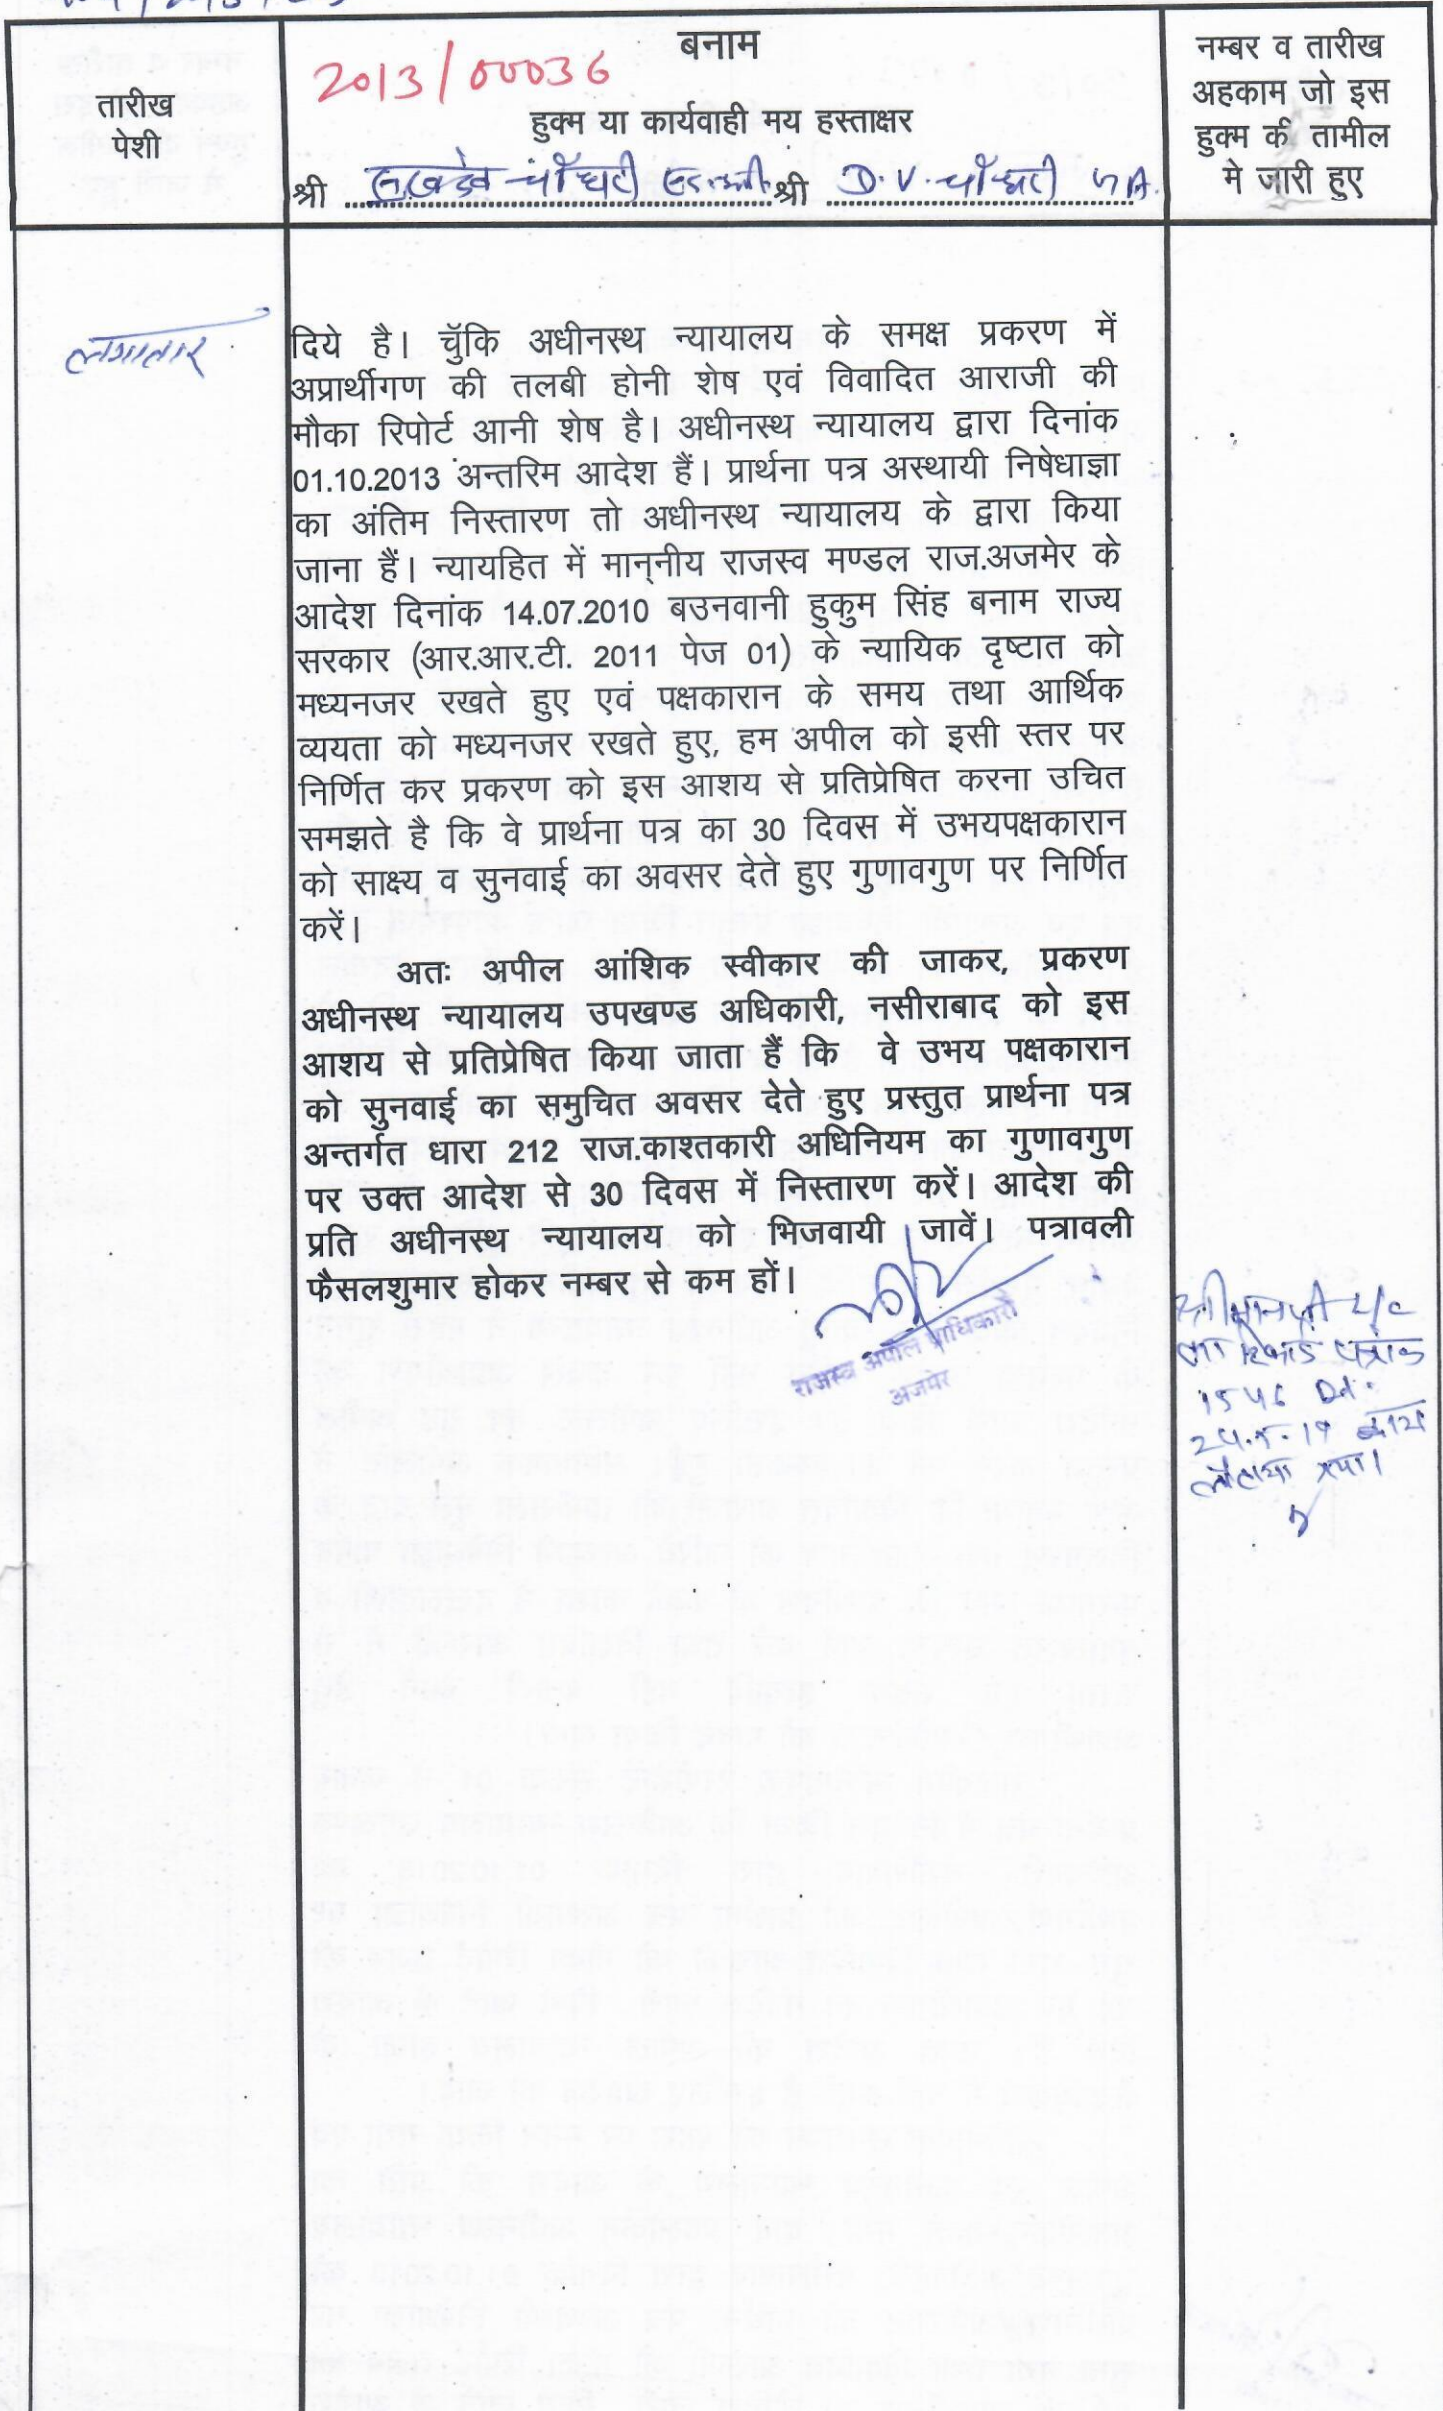 बनाम
2013/00036
तारीख
पेशी
हुक्म या कार्यवाही मय हस्ताक्षर
श्री चौधरी श्री D.V. चौधरी
नम्बर व तारीख
अहकाम जो इस
हुक्म की तामील
मे जारी हुए
लगातार
दिये है। चुॅकि अधीनस्थ न्यायालय के समक्ष प्रकरण में
अप्रार्थीगण की तलबी होनी शेष एवं विवादित आराजी की
मौका रिपोर्ट आनी शेष है। अधीनस्थ न्यायालय द्वारा दिनांक
01.10.2013 अन्तरिम आदेश हैं। प्रार्थना पत्र अस्थायी निषेधाज्ञा
का अंतिम निस्तारण तो अधीनस्थ न्यायालय के द्वारा किया
जाना हैं। न्यायहित में मान्नीय राजस्व मण्डल राज.अजमेर के
आदेश दिनांक 14.07.2010 बउनवानी हुकुम सिंह बनाम राज्य
सरकार (आर.आर.टी. 2011 पेज 01) के न्यायिक दृष्टात को
मध्यनजर रखते हुए एवं पक्षकारान के समय तथा आर्थिक
व्ययता को मध्यनजर रखते हुए, हम अपील को इसी स्तर पर
निर्णित कर प्रकरण को इस आशय से प्रतिप्रेषित करना उचित
समझते है कि वे प्रार्थना पत्र का 30 दिवस में उभयपक्षकारान
को साक्ष्य व सुनवाई का अवसर देते हुए गुणावगुण पर निर्णित
करें।
अतः अपील आंशिक स्वीकार की जाकर, प्रकरण
अधीनस्थ न्यायालय उपखण्ड अधिकारी, नसीराबाद को इस
आशय से प्रतिप्रेषित किया जाता हैं कि वे उभय पक्षकारान
को सुनवाई का समुचित अवसर देते हुए प्रस्तुत प्रार्थना पत्र
अन्तर्गत धारा 212 राज.काश्तकारी अधिनियम का गुणावगुण
पर उक्त आदेश से 30 दिवस में निस्तारण करें। आदेश की
प्रति अधीनस्थ न्यायालय को भिजवायी जावें। पत्रावली
फैसलशुमार होकर नम्बर से कम हों।
राजस्व अपील प्राधिकारी
अजमेर
का रिकार्ड पत्रांक
1546 Dt.
लौटाया गया।